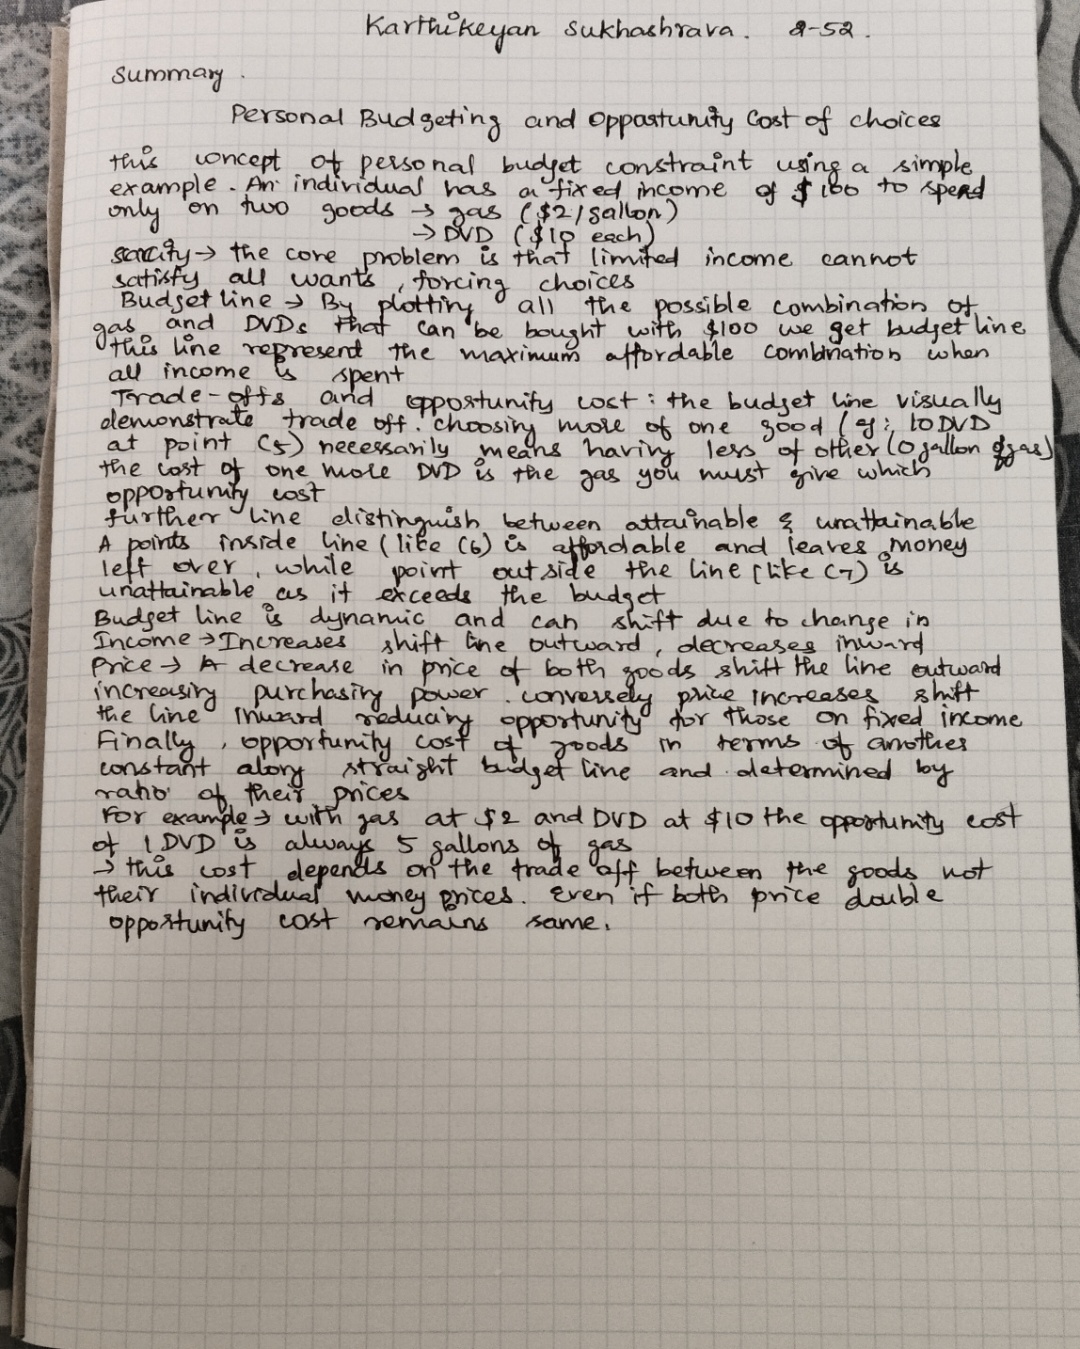 Karthikeyan Sukhashrava. 2-52.
Summary.
Personal Budgeting and Opportunity Cost of choices
this concept of personal budget constraint using a simple
example. An individual has a fixed income of $100 to spend
only on two goods → gas ($2/gallon)
→ DVD ($10 each)
Sarcity → the core problem is that limited income cannot
satisfy all wants, forcing choices
Budget line → By plotting all the possible combination of
gas and DVDs that can be bought with $100 we get budget line
this line represent the maximum affordable combination when
all income is spent
Trade-offs and opportunity cost: the budget line visually
demonstrate trade off. choosing more of one good (eg: 10 DVD
at point C5) necessarily means having less of other (0 gallon of gas)
the cost of one more DVD is the gas you must give which
opportunity cost
further line distinguish between attainable & unattainable
A points inside line (like C6) is affordable and leaves money
left over, while point outside the line (like C7) is
unattainable as it exceeds the budget
Budget line is dynamic and can shift due to change in
Income → Increases shift line outward, decreases inward
Price → A decrease in price of both goods shift the line outward
increasing purchasing power. conversely price increases shift
the line inward reducing opportunity for those on fixed income
Finally, opportunity cost of goods in terms of another
constant along straight budget line and determined by
ratio of their prices
For example → with gas at $2 and DVD at $10 the opportunity cost
of 1 DVD is always 5 gallons of gas
→ this cost depends on the trade off between the goods not
their individual money prices. Even if both price double
opportunity cost remains same.